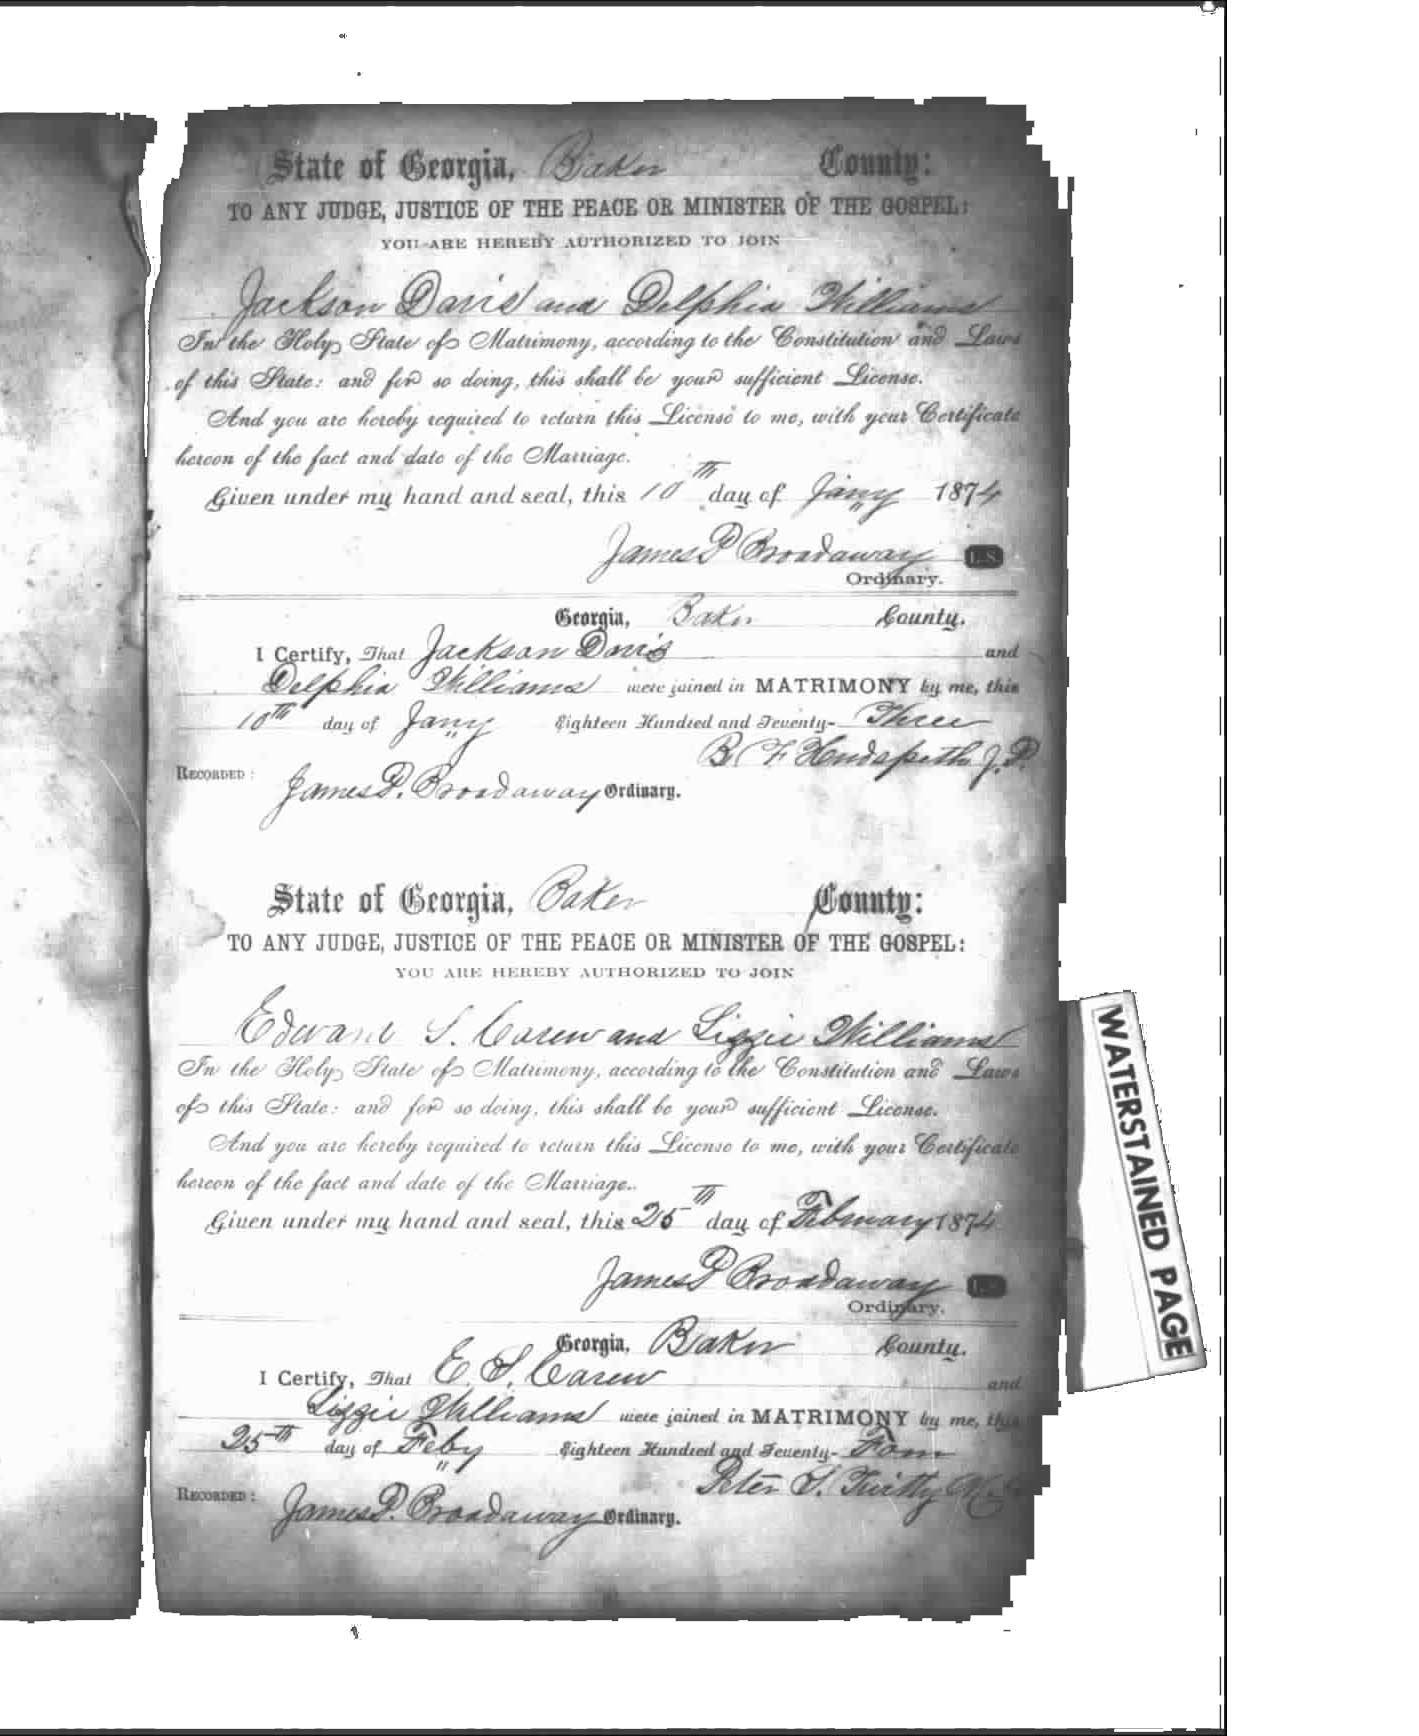 State of Georgia, Baker County:
TO ANY JUDGE, JUSTICE OF THE PEACE OR MINISTER OF THE GOSPEL:
YOU ARE HEREBY AUTHORIZED TO JOIN
Jackson Davis and Delphia Williams
In the Holy State of Matrimony, according to the Constitution and Laws
of this State: and for so doing, this shall be your sufficient License.
And you are hereby required to return this License to me, with your Certificate
hereon of the fact and date of the Marriage.
Given under my hand and seal, this 10th day of Jany 1874
James P Broadaway L.S.
Ordinary.
Georgia, Baker County.
I Certify, That Jackson Davis and
Delphia Williams were joined in MATRIMONY by me, this
10th day of Jany Eighteen Hundred and Seventy- Three
B. F. Hudspeth J.P.
RECORDED:
James P. Broadaway Ordinary.
State of Georgia, Baker County:
TO ANY JUDGE, JUSTICE OF THE PEACE OR MINISTER OF THE GOSPEL:
YOU ARE HEREBY AUTHORIZED TO JOIN
Edward S. Carew and Lizzie Williams
In the Holy State of Matrimony, according to the Constitution and Laws
of this State: and for so doing, this shall be your sufficient License.
And you are hereby required to return this License to me, with your Certificate
hereon of the fact and date of the Marriage.
Given under my hand and seal, this 25th day of February 1874
James P Broadaway L.S.
Ordinary.
Georgia, Baker County.
I Certify, That E. S. Carew and
Lizzie Williams were joined in MATRIMONY by me, this
25th day of Feby Eighteen Hundred and Seventy- Four
Peter S. Twitty
RECORDED:
James P. Broadaway Ordinary.
WATERSTAINED PAGE